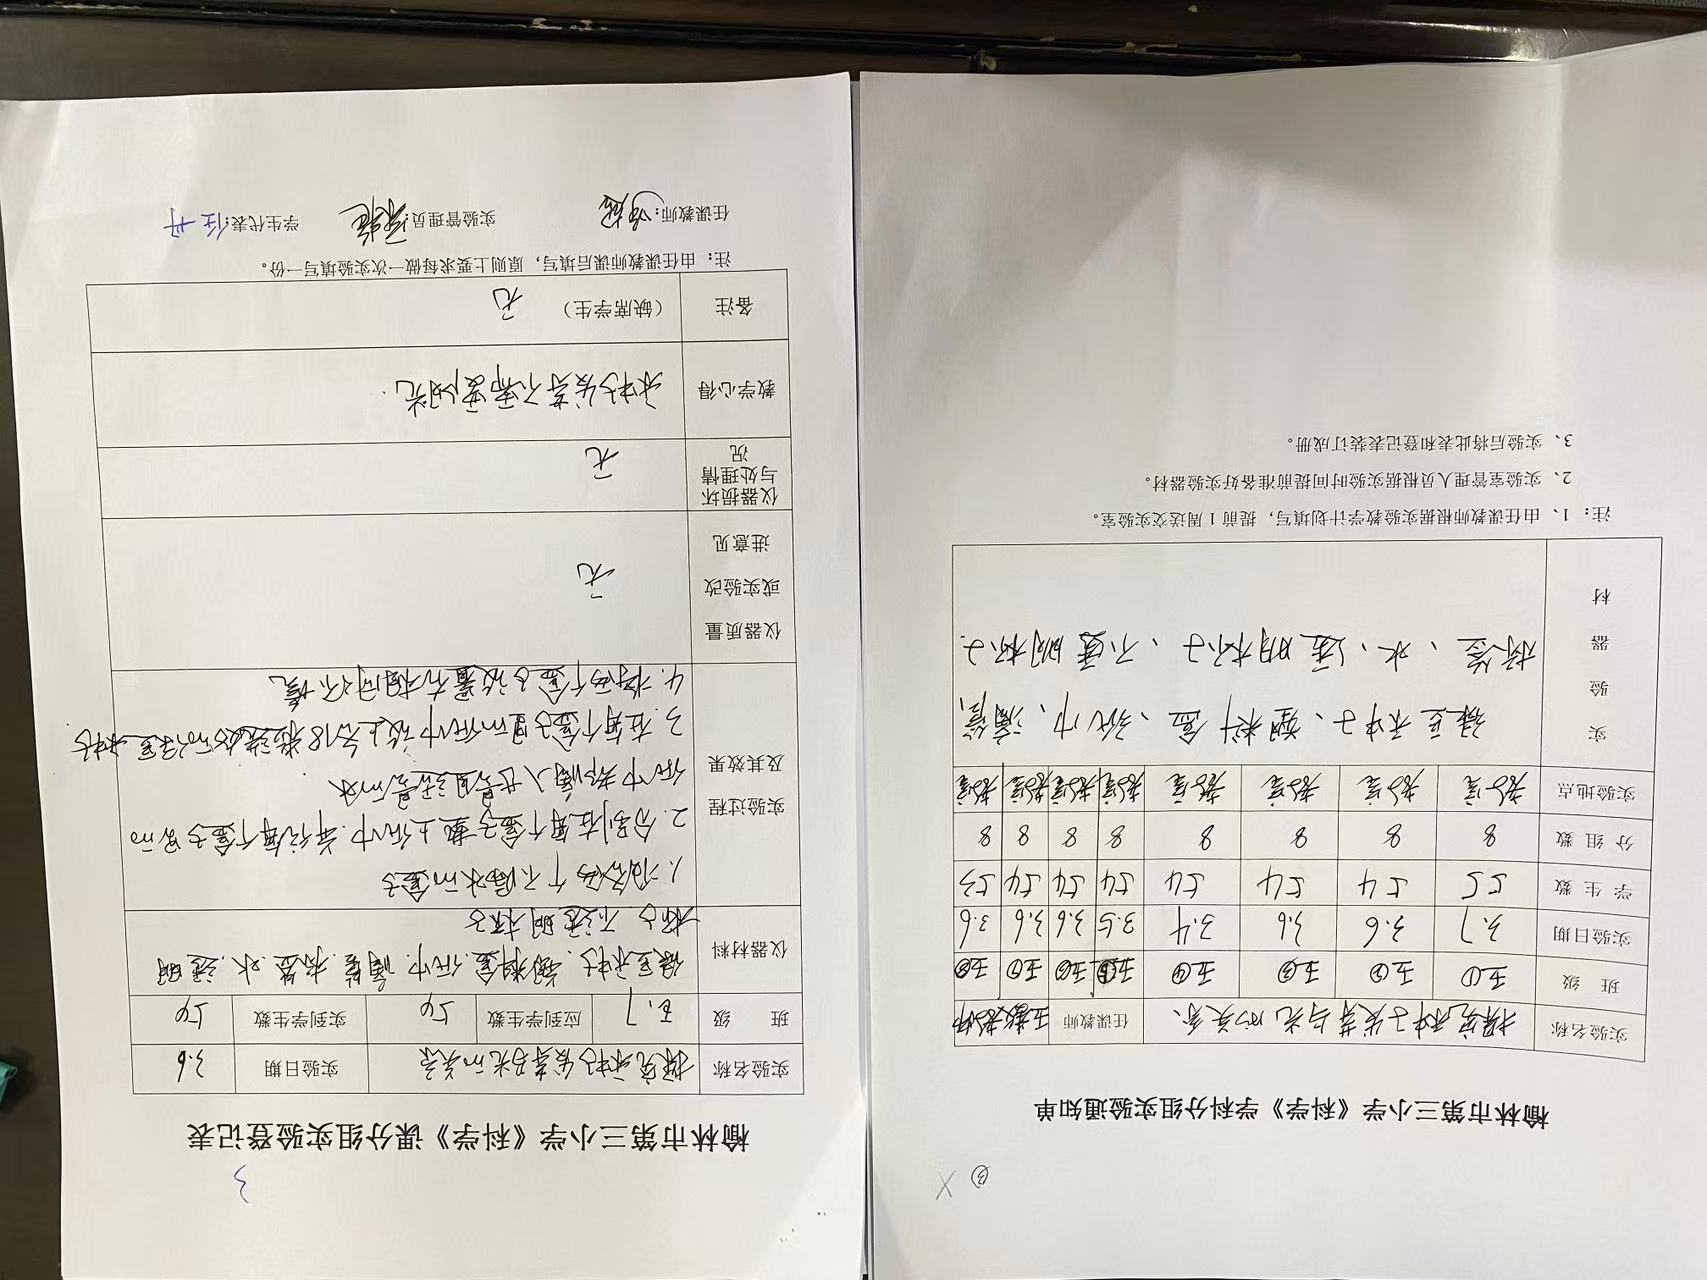 ③
榆林市第三小学《科学》学科分组实验通知单
实验名称 探究种子发芽与光的关系. 任课教师
班 级 五① 五② 五③ 五④ 五⑤ 五⑥ 五⑦ 五⑧
实验日期 3.7 3.6 3.6 3.4 3.5 3.6 3.6 3.6
学生数 55 54 54 54 54 54 54 53
分组数 8 8 8 8 8 8 8 8
实验地点 教室 教室 教室 教室 教室 教室 教室 教室
实验器材 绿豆种子、塑料盒、纸巾、滴管、
标签、水、透明杯子、不透明杯子.
注：1、由任课教师根据实验教学计划填写，提前1周送交实验室。
2、实验室管理人员根据实验时间提前准备好实验器材。
3、实验后将此表和登记表装订成册。
3
榆林市第三小学《科学》课分组实验登记表
实验名称 探究种子发芽与光的关系 实验日期 3.6
班 级 五.7 应到学生数 54 实到学生数 54
仪器材料 绿豆种子.塑料盒.纸巾.滴管.标签.水.透明
杯子.不透明杯子
实验过程及其效果 1.准备两个不漏水的盒子
2.分别在每个盒子垫上纸巾.并往每个盒子里的
纸巾都滴入等量适量的水
3.在每个盒子里的纸巾放上各18粒的绿豆种子
4.将两个盒子放置在相同环境
仪器质量或实验改进意见 无
仪器损坏与处理情况 无
教学心得 种子发芽不需要阳光.
备注 （缺席学生） 无
注：由任课教师课后填写，原则上要求每做一次实验填写一份。
任课教师: 实验管理员: 学生代表:任丹